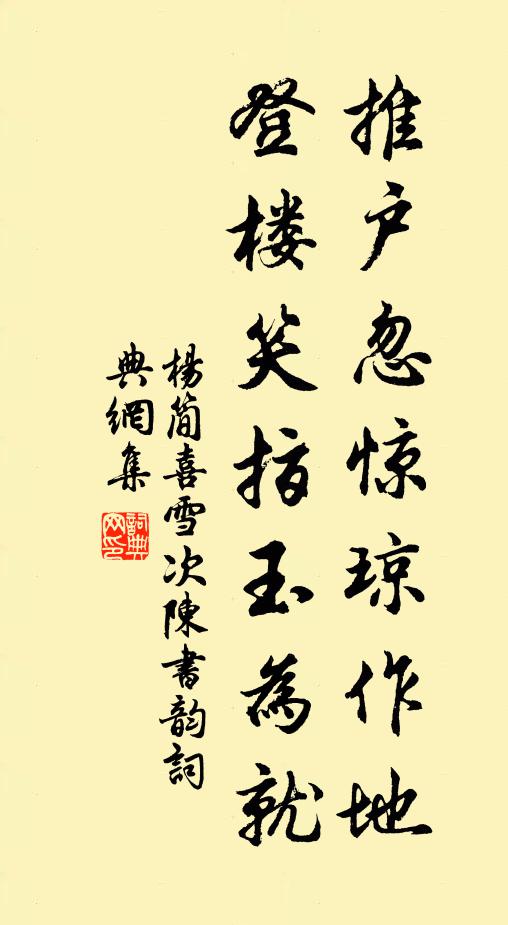 推户忽惊琼作地
登楼笑指玉為就
楊简喜雪次陳書韵詞
典網集
詞典网印